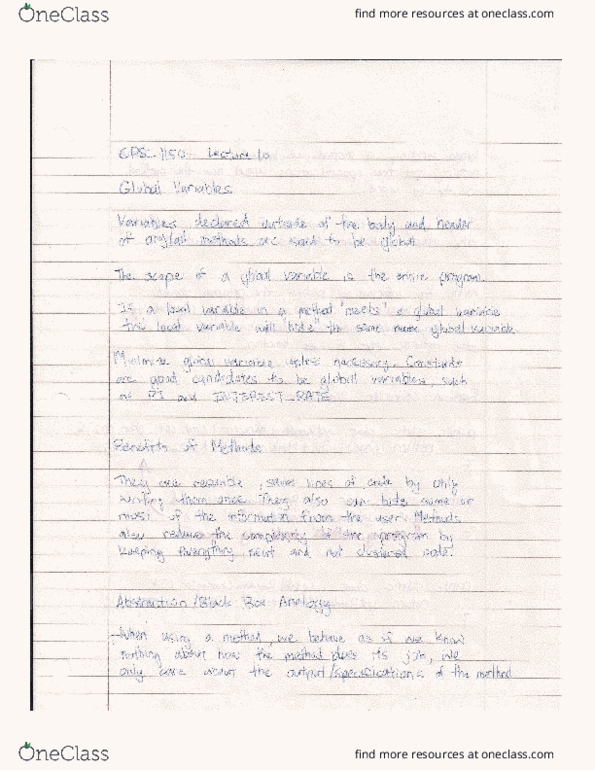 OneClass
find more resources at oneclass.com
CPSC 1150 Lecture 10
Global Variables
Variables declared outside of the body and header
of any/all methods are said to be global.
The scope of a global variable is the entire program.
If a local variable in a method "meets" a global variable
the local variable will "hide" the same name global variable
Minimize global variable unless necessary. Constants
are good candidates to be global variables, such
as PI and INTEREST_RATE
Benefits of Methods
They are reusable, saves lines of code by only
writing them once. They also can hide some or
most of the information from the user. Methods
also reduces the complexity of the program by
keeping everything neat and not cluttered code.
Abstraction/Black Box Analogy
When using a method, we behave as if we know
nothing about how the method does its job, we
only care about the output/specifications of the method
OneClass
find more resources at oneclass.com